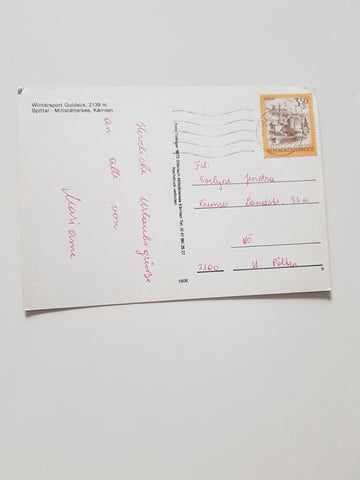 Wintersport Goldeck, 2139 m
Spittal - Millstättersee, Kärnten
Herzliche Urlaubsgrüße
an alle von
Marianne
3.50
REPUBLIK ÖSTERREICH
Frl.
Evelyne Jindra
Kremser Landstr. 33a
NÖ
3100 St. Pölten
1606